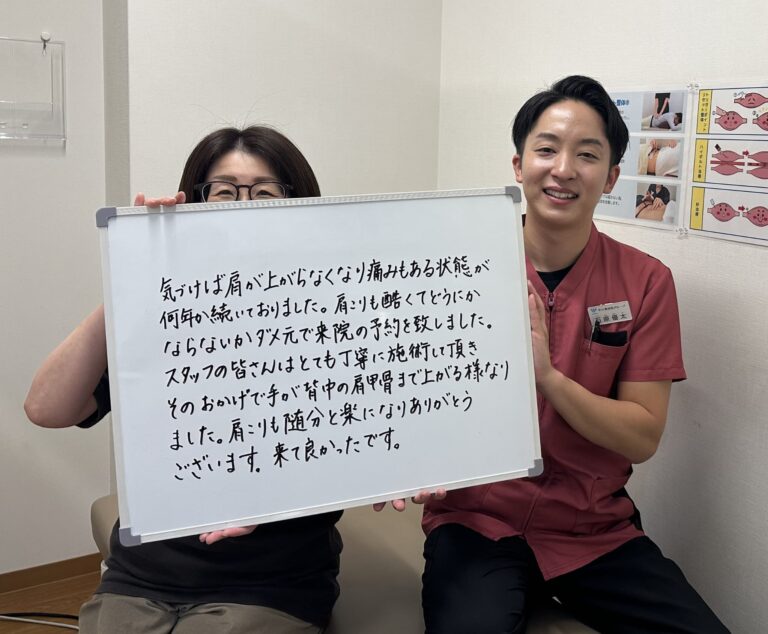 気づけば肩が上がらなくなり痛みもある状態が
何年か続いておりました。肩こりも酷くてどうにか
ならないかダメ元で来院の予約を致しました。
スタッフの皆さんはとても丁寧に施術して頂き
そのおかげで手が背中の肩甲骨まで上がる様なり
ました。肩こりも随分と楽になりありがとう
ございます。来て良かったです。